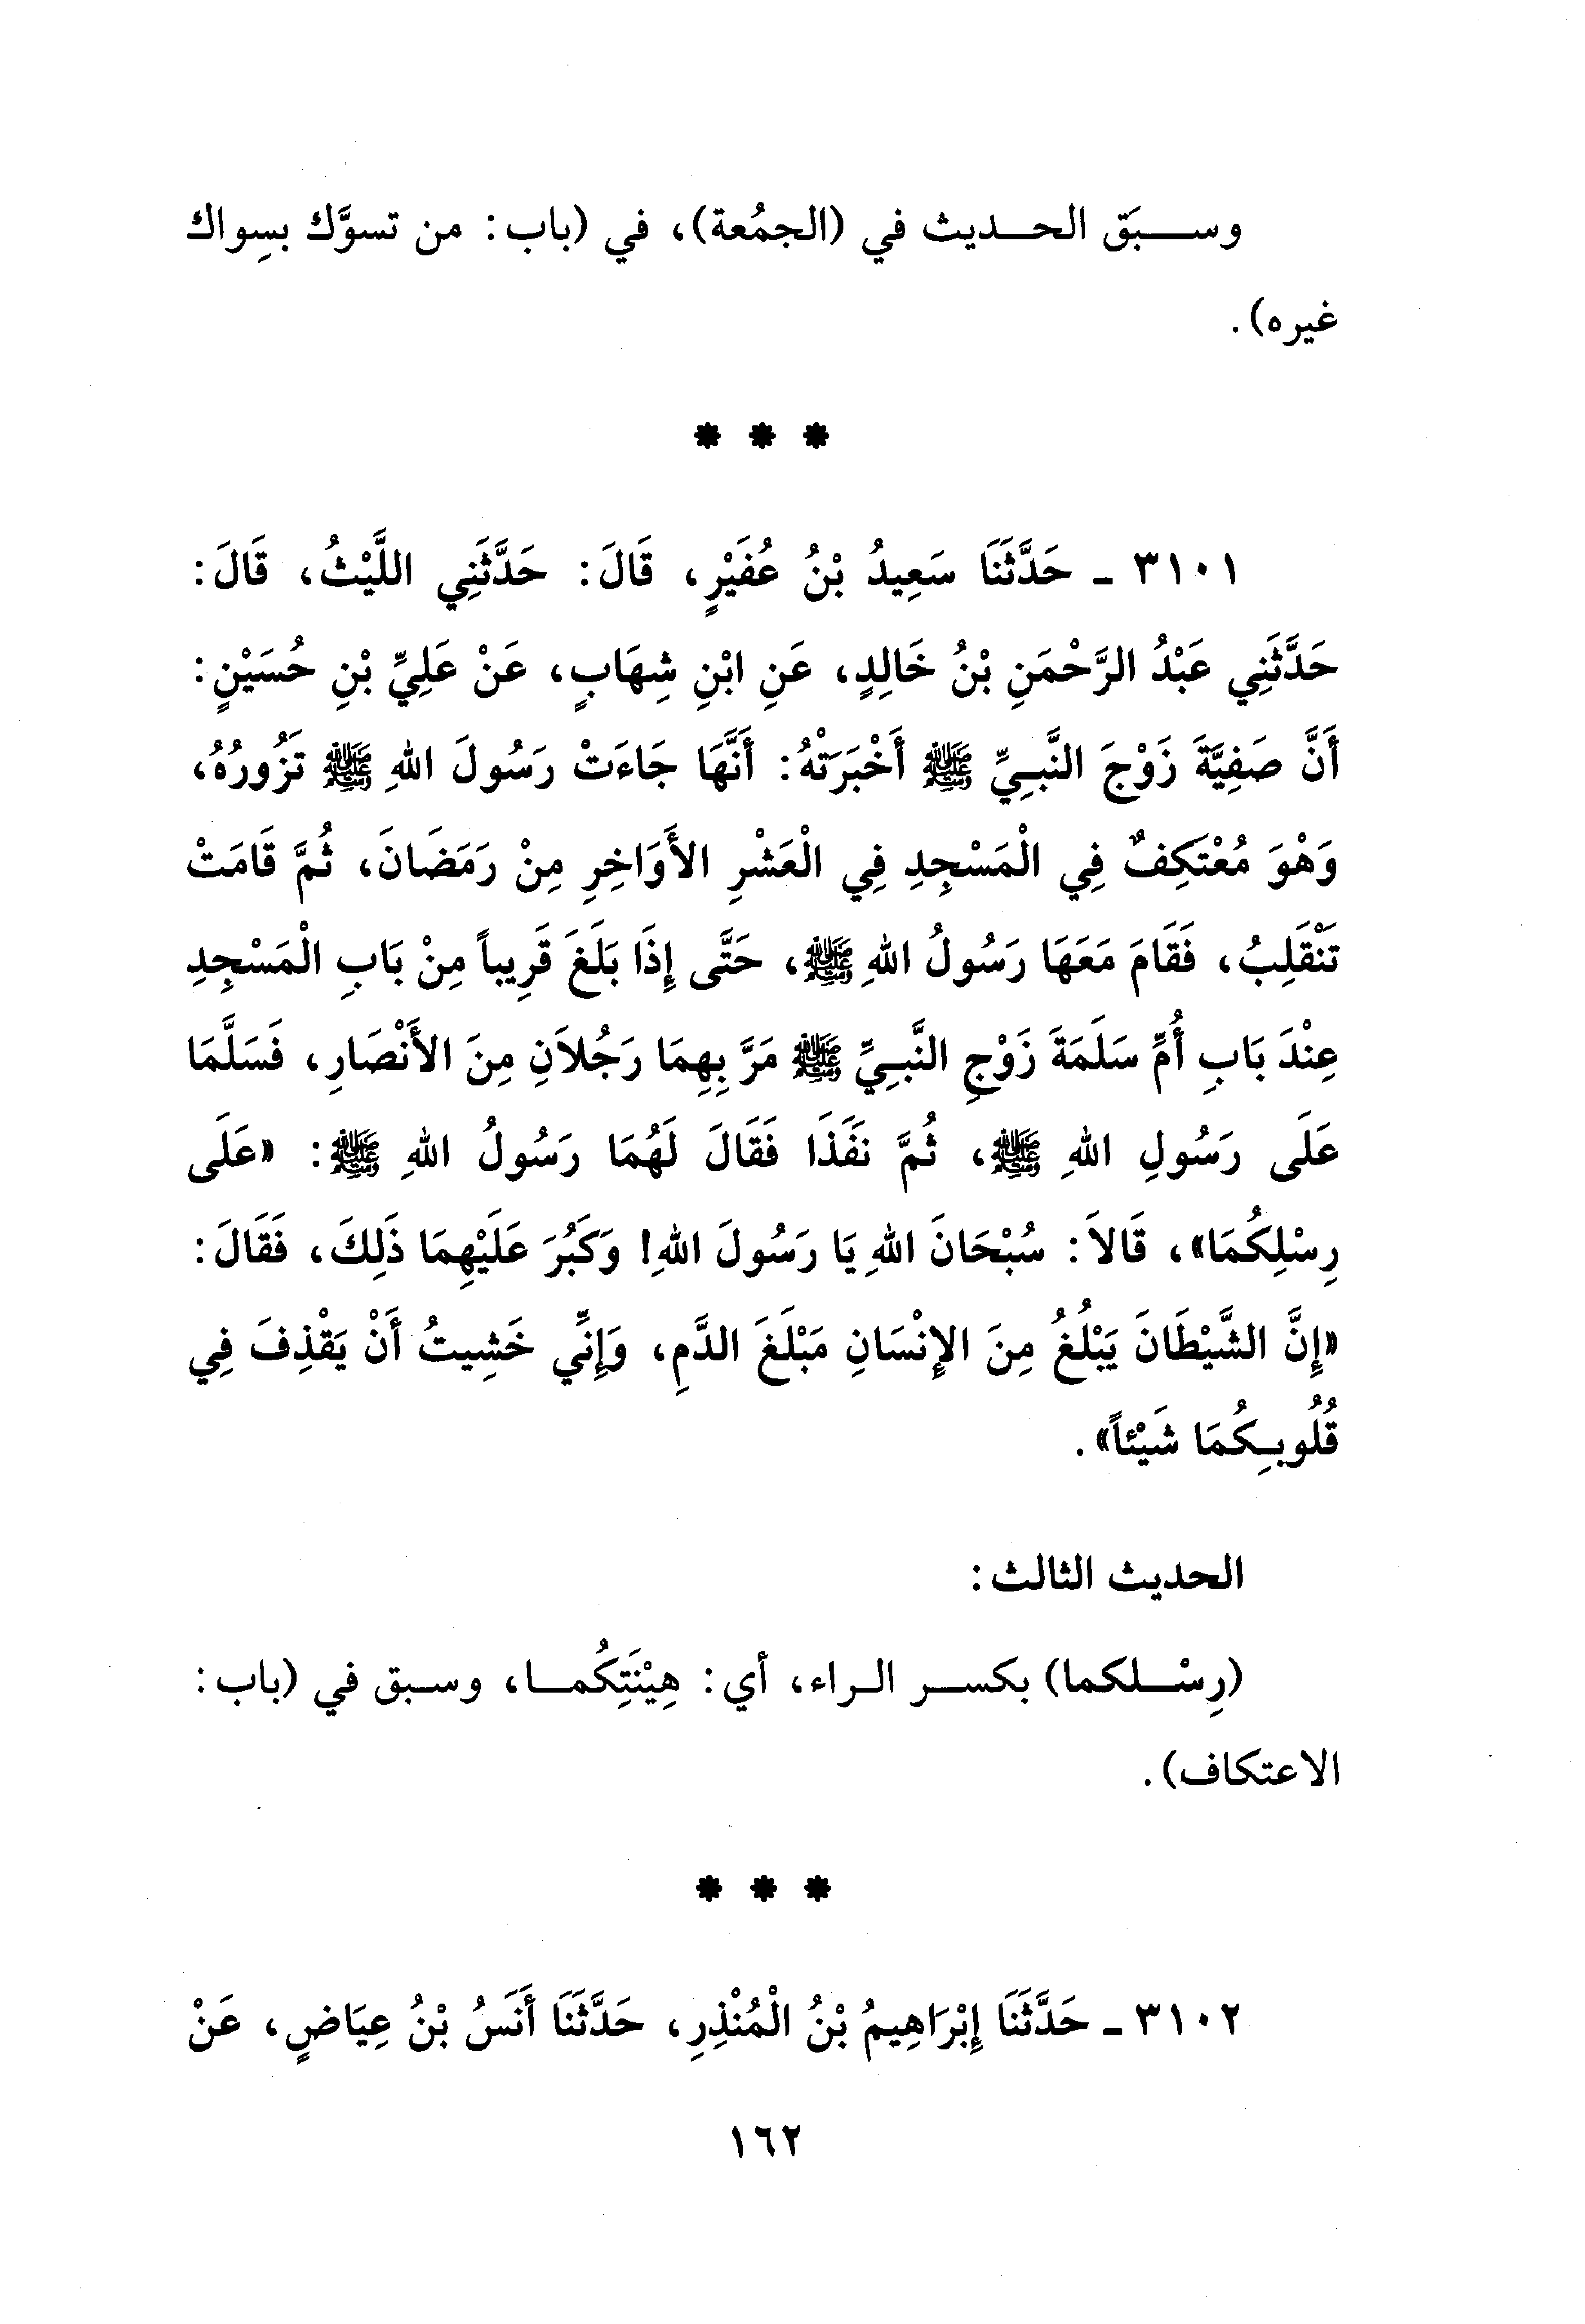 وسـبَق الحـديث في (الجمُعة)، في (باب: من تسوَّك بسِواك
غيره).
* * *
٣١٠١ - حَدَّثَنَا سَعِيدُ بْنُ عُفَيْرٍ، قَالَ: حَدَّثَنِي اللَّيْثُ، قَالَ:
حَدَّثَنِي عَبْدُ الرَّحْمَنِ بْنُ خَالِدٍ، عَنِ ابْنِ شِهَابٍ، عَنْ عَلِيِّ بْنِ حُسَيْنٍ:
أَنَّ صَفِيَّةَ زَوْجَ النَّبِيِّ ﷺ أَخْبَرَتْهُ: أَنَّهَا جَاءَتْ رَسُولَ اللهِ ﷺ تَزُورُهُ،
وَهْوَ مُعْتَكِفٌ فِي الْمَسْجِدِ فِي الْعَشْرِ الأَوَاخِرِ مِنْ رَمَضَانَ، ثُمَّ قَامَتْ
تَنْقَلِبُ، فَقَامَ مَعَهَا رَسُولُ اللهِ ﷺ، حَتَّى إِذَا بَلَغَ قَرِيباً مِنْ بَابِ الْمَسْجِدِ
عِنْدَ بَابِ أُمِّ سَلَمَةَ زَوْجِ النَّبِيِّ ﷺ مَرَّ بِهِمَا رَجُلاَنِ مِنَ الأَنْصَارِ، فَسَلَّمَا
عَلَى رَسُولِ اللهِ ﷺ، ثُمَّ نَفَذَا فَقَالَ لَهُمَا رَسُولُ اللهِ ﷺ: «عَلَى
رِسْلِكُمَا»، قَالاَ: سُبْحَانَ اللهِ يَا رَسُولَ اللهِ! وَكَبُرَ عَلَيْهِمَا ذَلِكَ، فَقَالَ:
«إِنَّ الشَّيْطَانَ يَبْلُغُ مِنَ الإِنْسَانِ مَبْلَغَ الدَّمِ، وَإِنِّي خَشِيتُ أَنْ يَقْذِفَ فِي
قُلُوبِكُمَا شَيْئاً».
الحديث الثالث:
(رِسْـلكما) بكسـر الـراء، أي: هِيْنَتِكُمـا، وسـبق في (باب:
الاعتكاف).
* * *
٣١٠٢ - حَدَّثَنَا إِبْرَاهِيمُ بْنُ الْمُنْذِرِ، حَدَّثَنَا أَنَسُ بْنُ عِيَاضٍ، عَنْ
١٦٢